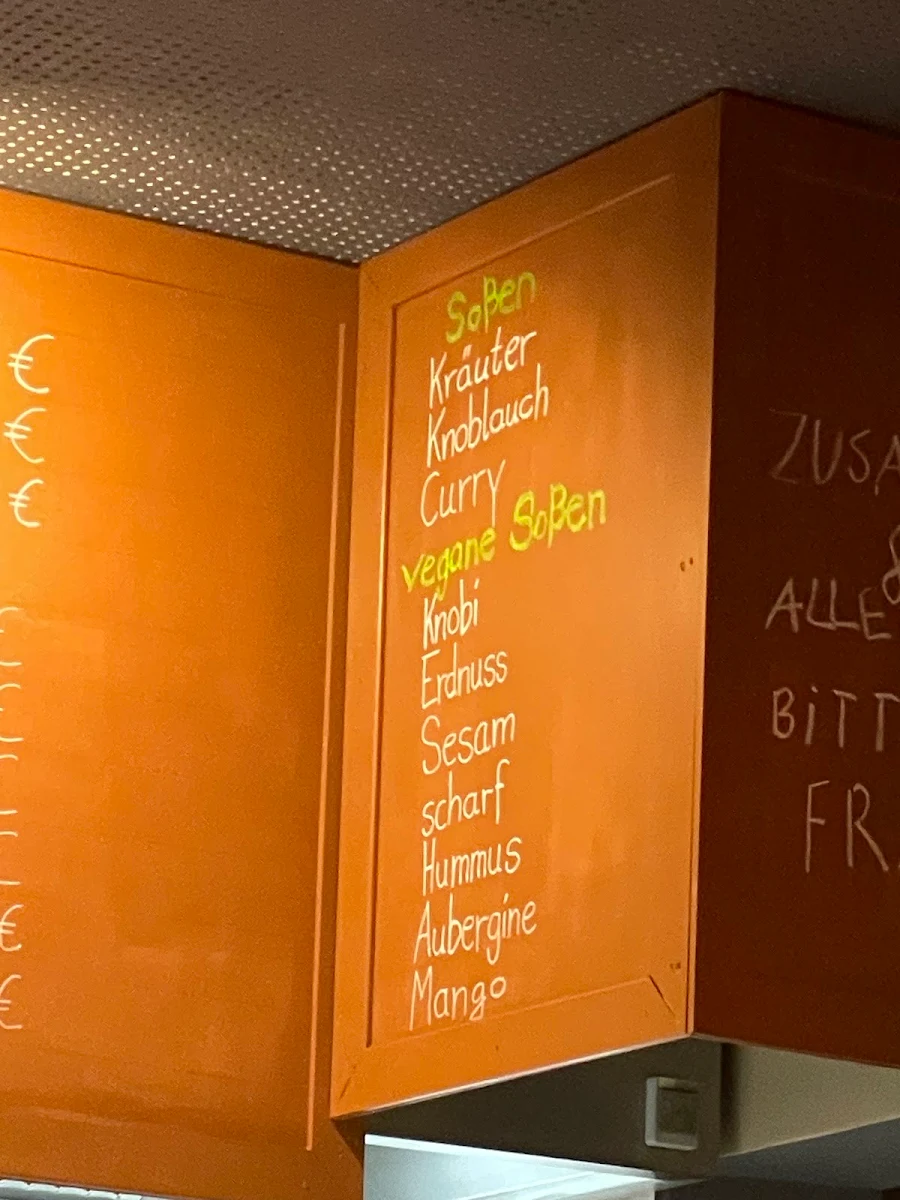 €
€
€
€
€
Soßen
Kräuter
Knoblauch
Curry
vegane Soßen
Knobi
Erdnuss
Sesam
scharf
Hummus
Aubergine
Mango
ALLE